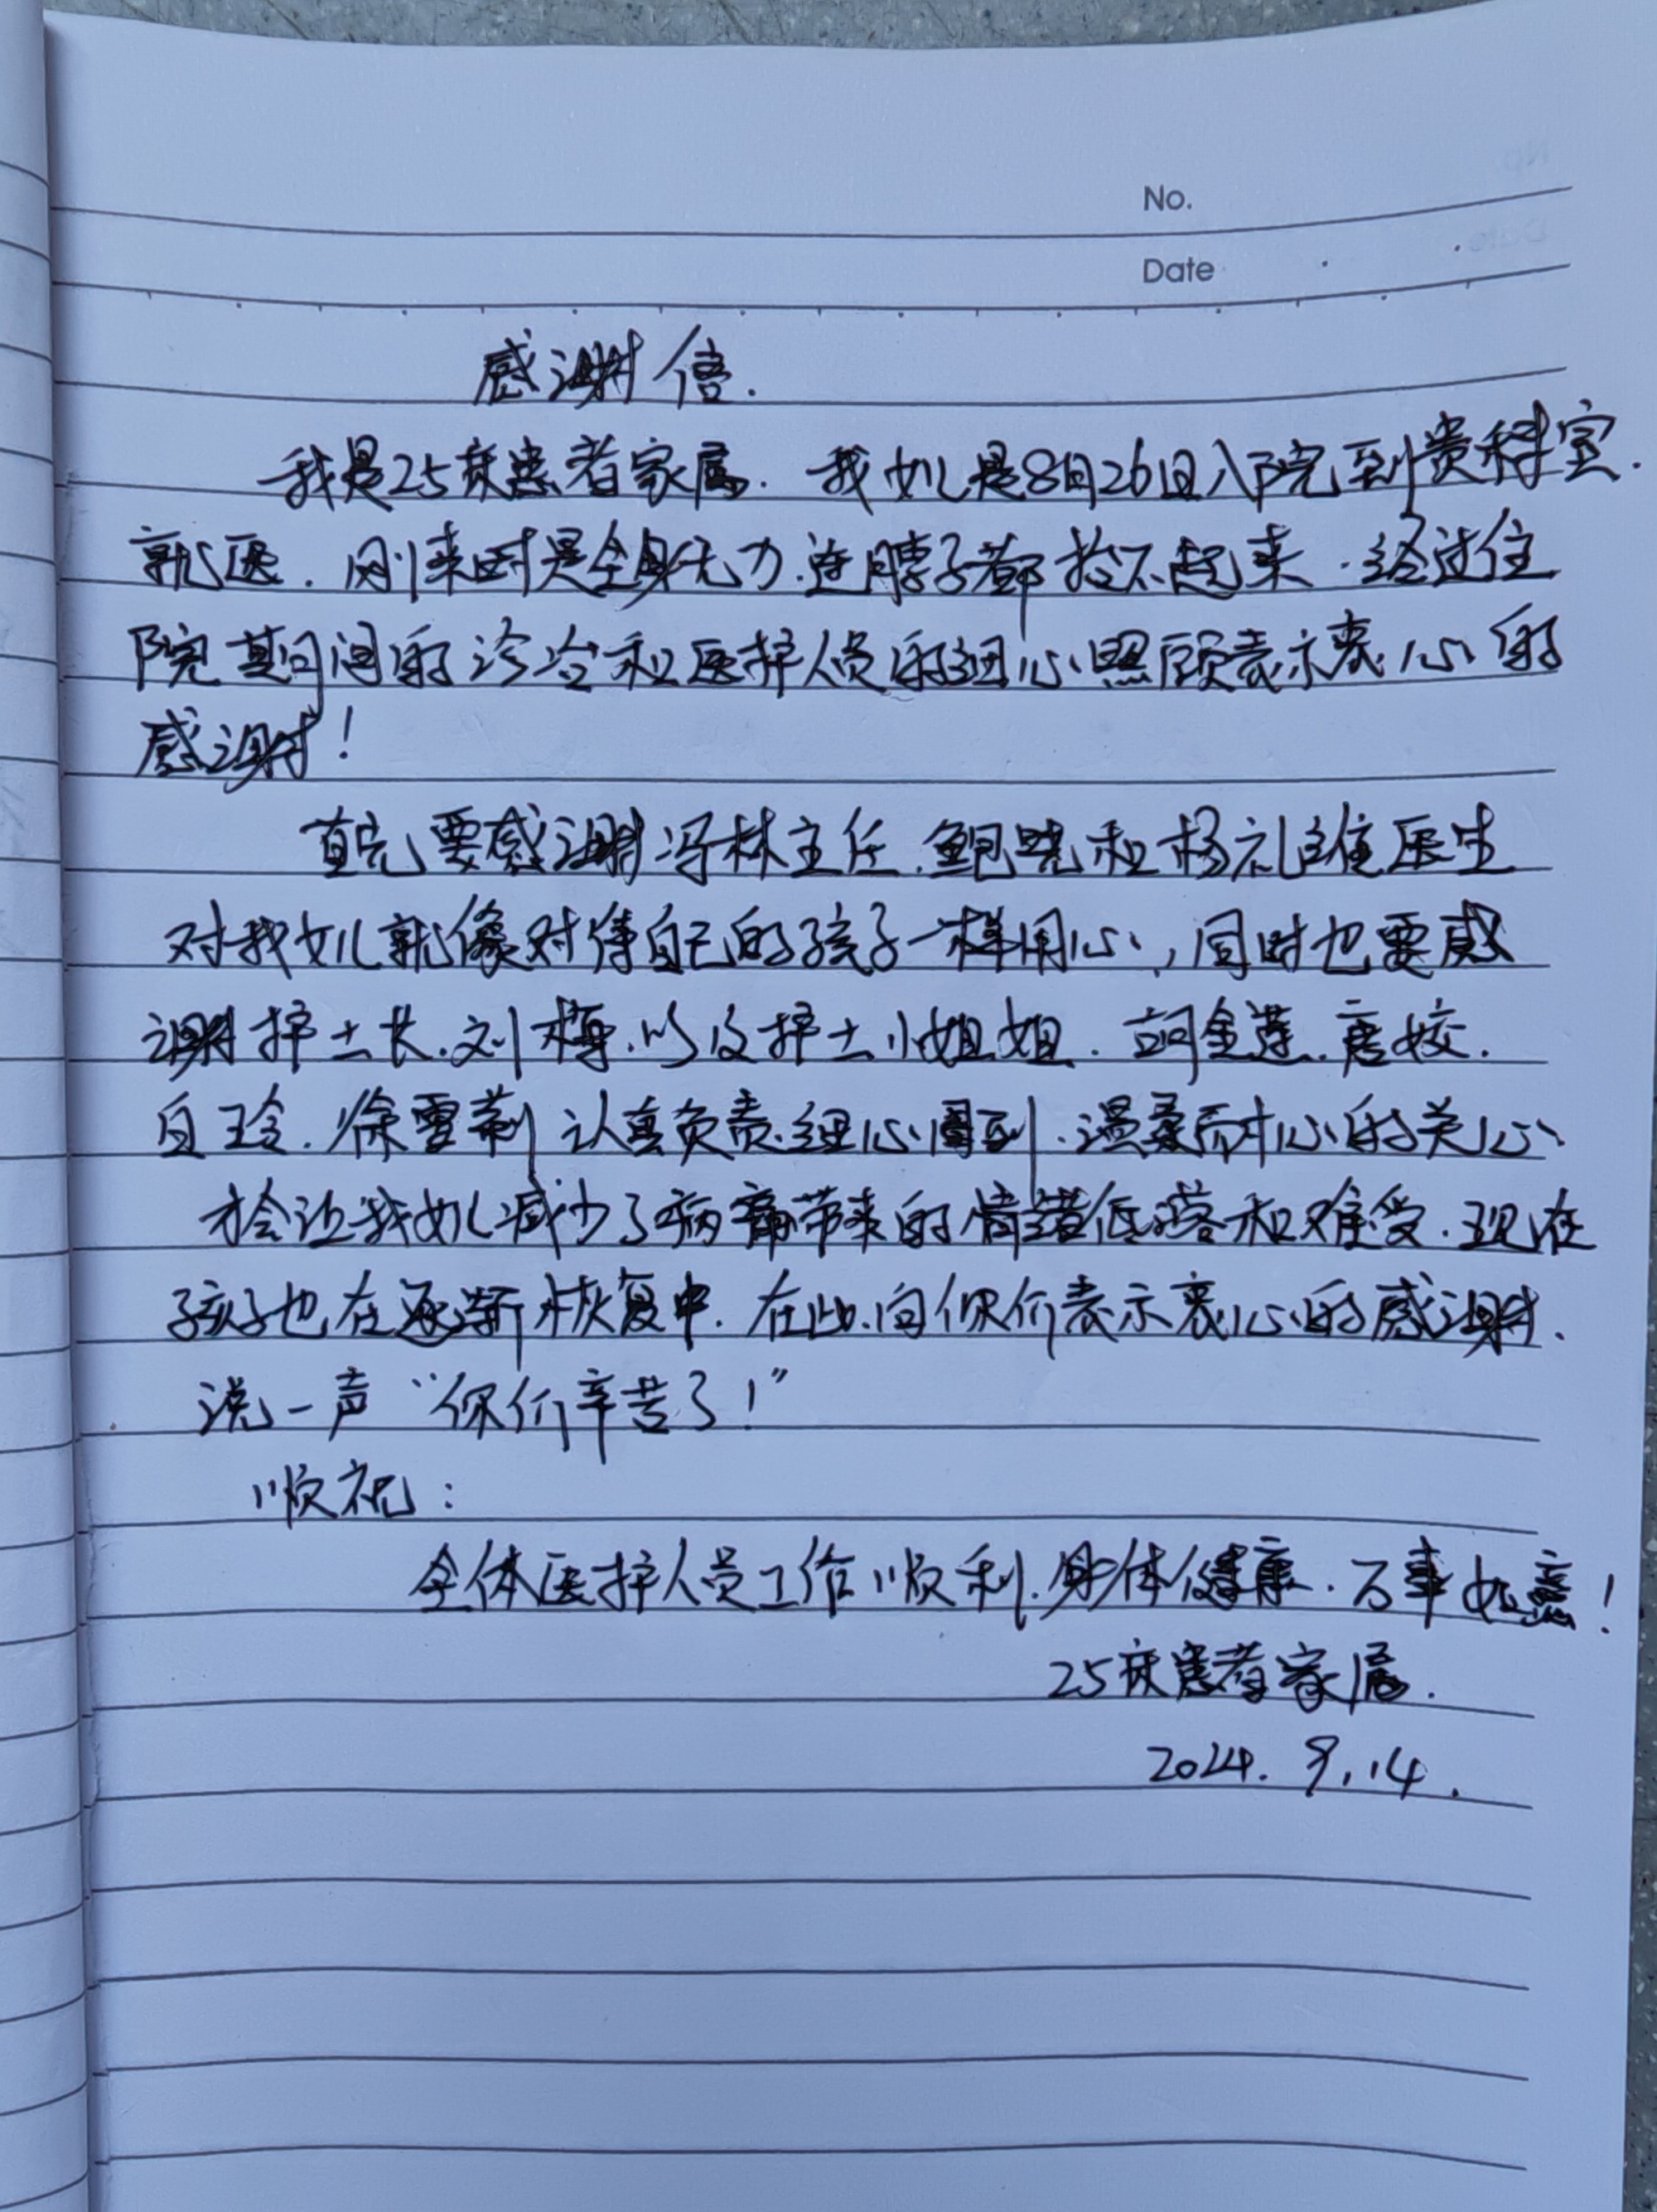 No.
Date
感谢信.
我是25床患者家属. 我女儿是8月26日入院到贵科室.
就医. 刚来时是全身无力.连脖子都抬不起来.经过住
院期间的诊治和医护人员的细心照顾表示衷心的
感谢!
首先要感谢冯林主任.鲍晓和杨礼雄医生
对我女儿就像对待自己的孩子一样用心,同时也要感
谢护士长.刘梅.以及护士小姐姐. 金莲.唐姣.
白玲.徐雪莉认真负责.细心周到.温柔耐心的关心
才会让我女儿减少了病痛带来的情绪低落和难受.现在
孩子也在逐渐恢复中.在此向你们表示衷心的感谢.
说一声“你们辛苦了!”
顺祝:
全体医护人员工作顺利.身体健康.万事如意!
25床患者家属.
2024. 9.14.